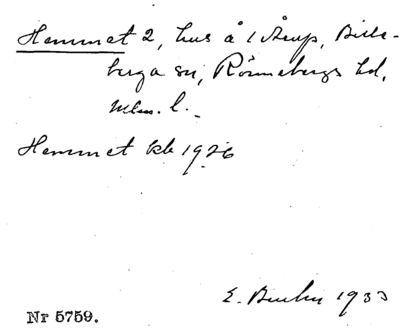 Hemmet 2, hus å 1 Årup, Bille-
berga sn, Rönnebergs hd,
Mlm. l.
Hemmet kb 1926
E. 1933
Nr 5759.